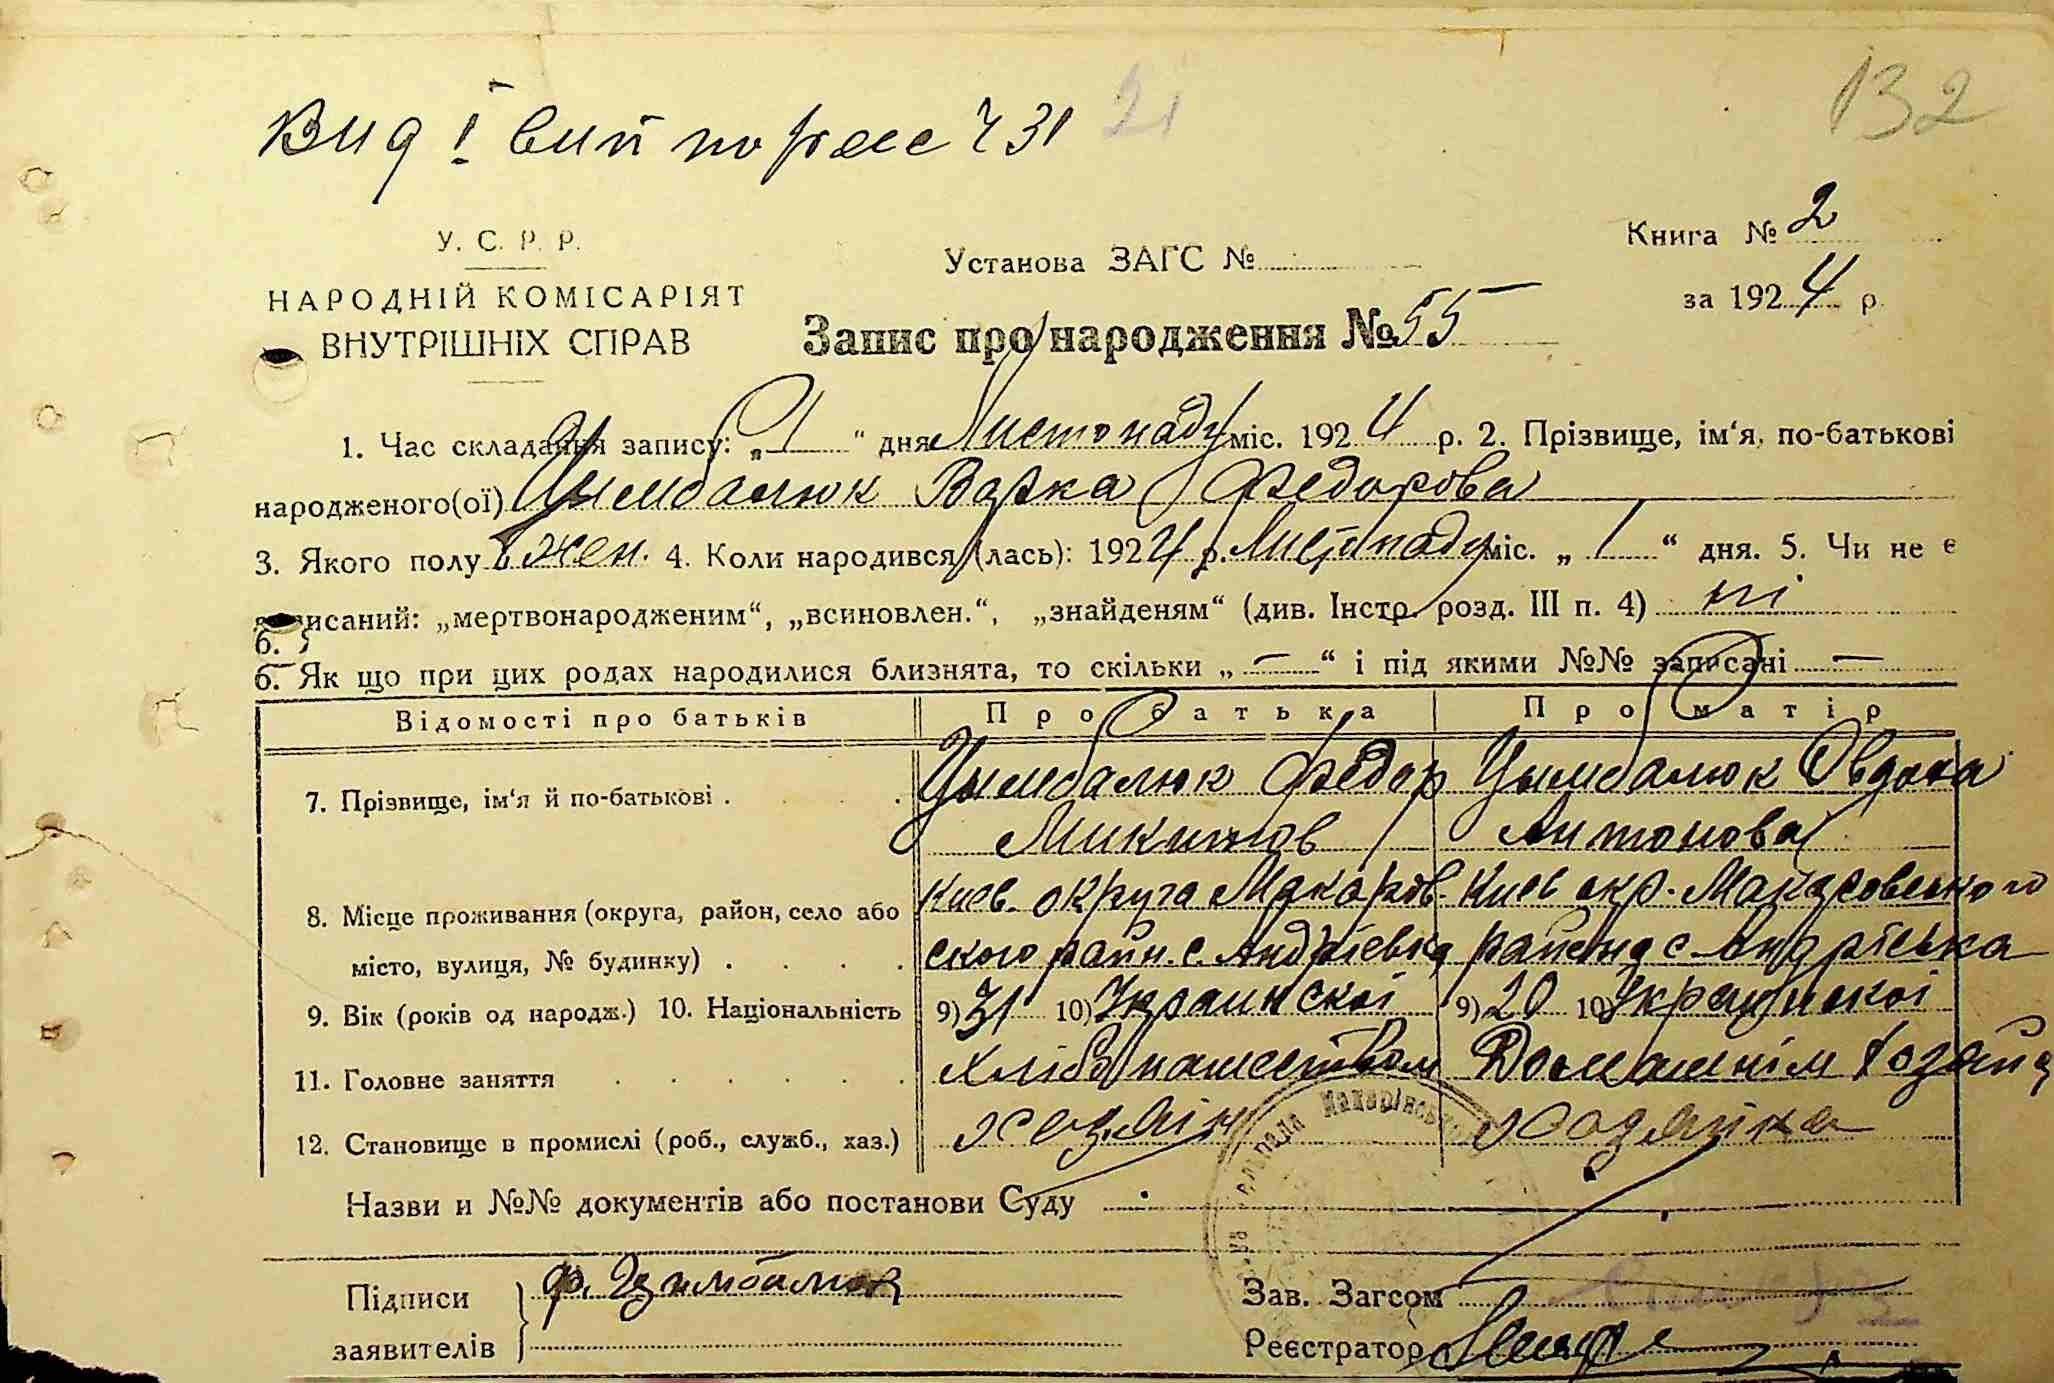 132
Вид 1 вип по рее Ч 31 21
У. С. Р. Р.
НАРОДНІЙ КОМІСАРІЯТ
ВНУТРІШНІХ СПРАВ
Установа ЗАГС №
Книга № 2
за 1924 р.
Запис про народження № 55
1. Час складання запису: „1“ дня Листопаду міс. 1924 р. 2. Прізвище, ім‘я, по-батькові
народженого(ої) Цымбалюк Варка Федорова
3. Якого полу жен. 4. Коли народився (лась): 1924 р. Листопаду міс. „1“ дня. 5. Чи не є
записаний: „мертвонародженим“, „всиновлен.“, „знайденям“ (див. Інстр. розд. III п. 4) ні
6.
6. Як що при цих родах народилися близнята, то скільки „—“ і під якими №№ записані —
Відомості про батьків Про батька Про матір
7. Прізвище, ім‘я й по-батькові . Цымбалюк Федор Микитов Цымбалюк Овдока Антонова
8. Місце проживання (округа, район, село або місто, вулиця, № будинку) . Киев. округа Макаровского райн. с. Андріевка Киев окр. Макаровського района с Андріевка
9. Вік (років од народж.) 10. Національність 9) 31 10) Украинскоі 9) 20 10) Украинскоі
11. Головне заняття Хлібопашеством Домашнім
12. Становище в промислі (роб., служб., хаз.) Хозяін Хозяйка
Назви и №№ документів або постанови Суду
Підписи
заявителів
Ф. Цымбалюк
Зав. Загсом
Реєстратор